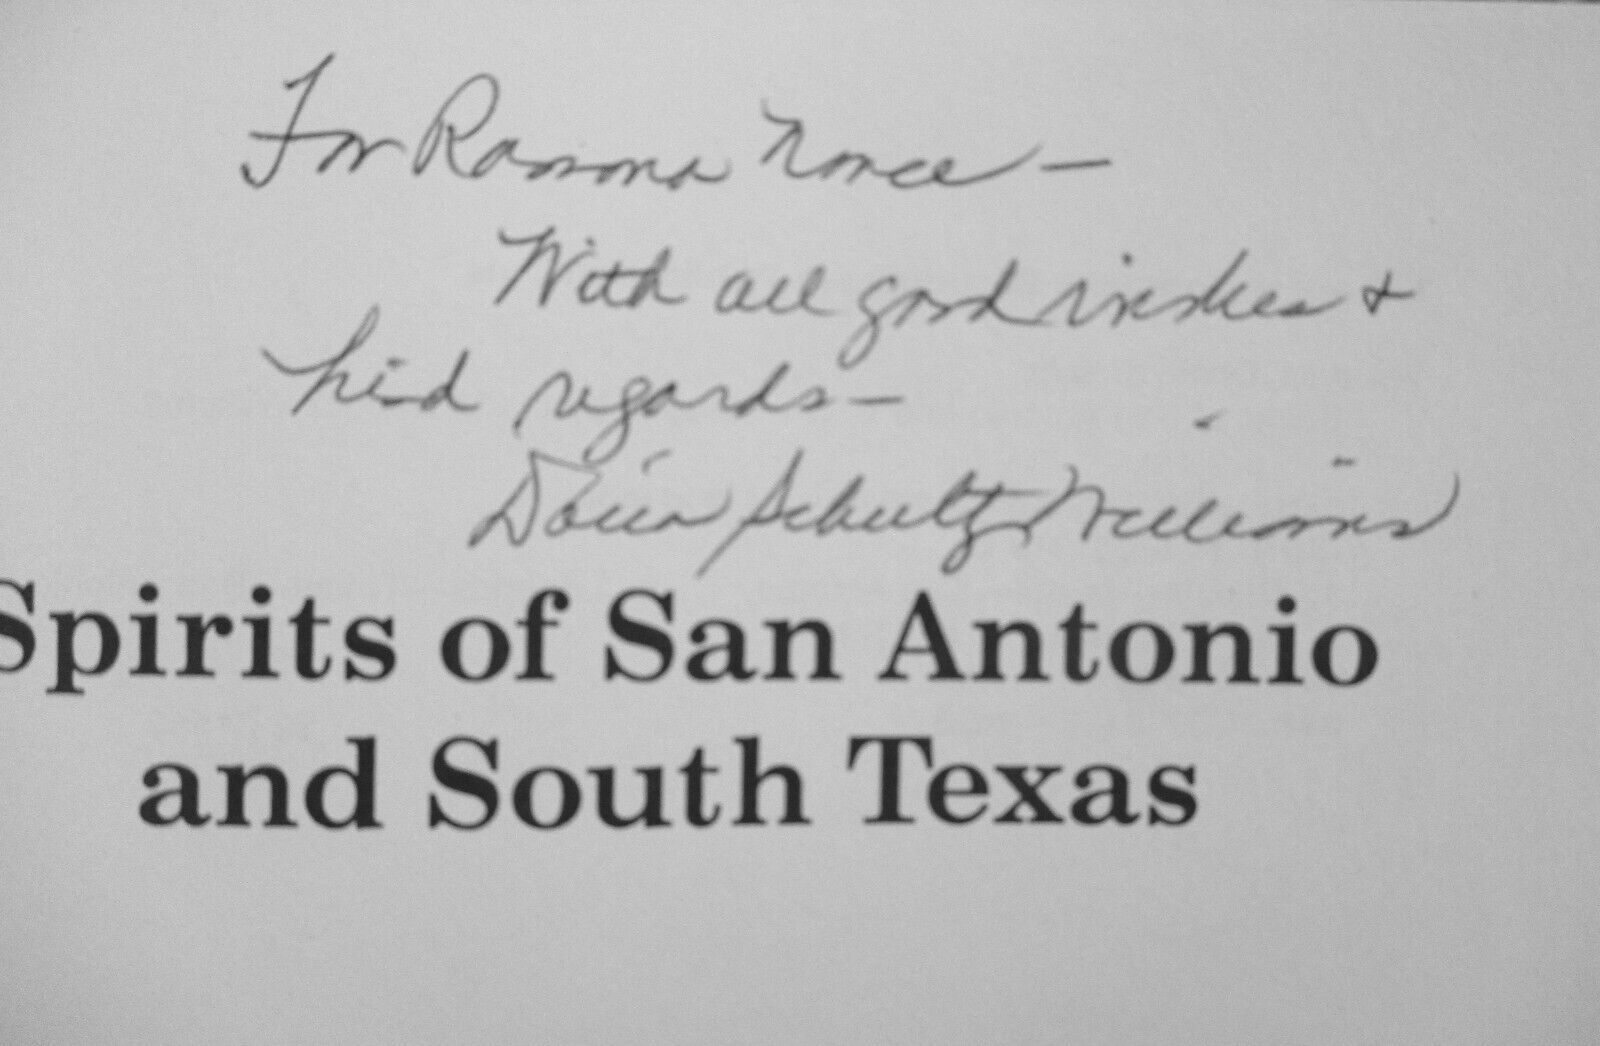 For Ramona Nance —
With all good wishes +
kind regards —
Docia Schultz Williams
Spirits of San Antonio
and South Texas